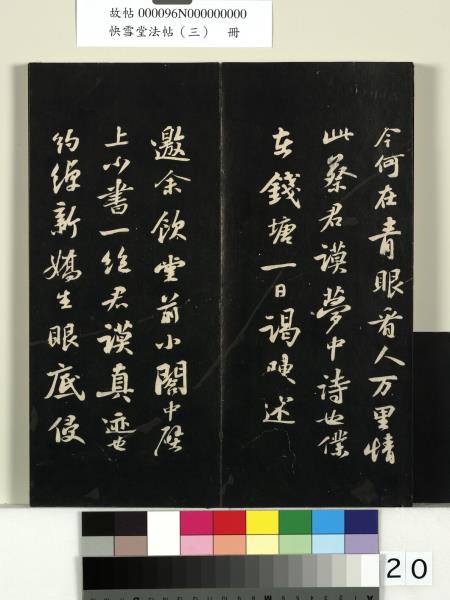 故帖 000096N000000000
快雪堂法帖（三） 冊
今何在青眼看人万里情
此蔡君謨夢中詩也僕
在錢塘一日謁陳述
邀余飲堂前小閣中壁
上小書一絶君謨真迹也
約綽新嬌生眼底侵
20